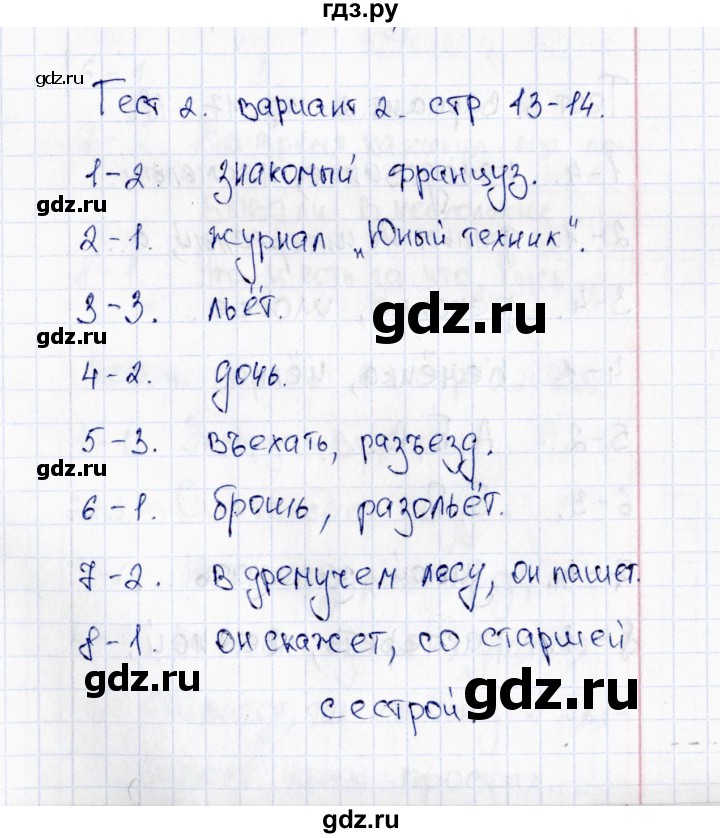 гдз.ру
gdz.ru
Тест 2. вариант 2. стр 13-14.
1-2. знакомый француз.
gdz.ru
2-1. журнал „Юный техник".
3-3. льёт.
gdz.ru
gdz.ru
4-2. дочь.
5-3. въехать, разъезд.
gdz.ru
6-1. брошь, разольёт.
7-2. в дремучем лесу, он пашет.
8-1. он скажет, со старшей
gdz.ru
gdz.ru
сестрой.
гдз.ру